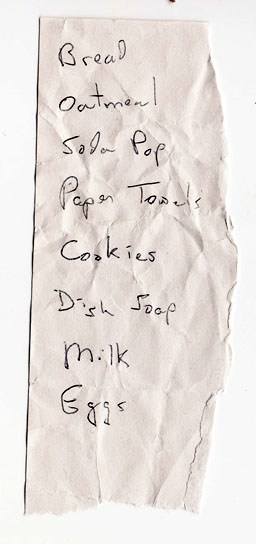 Bread
Oatmeal
Soda Pop
Paper Towels
Cookies
Dish Soap
Milk
Eggs